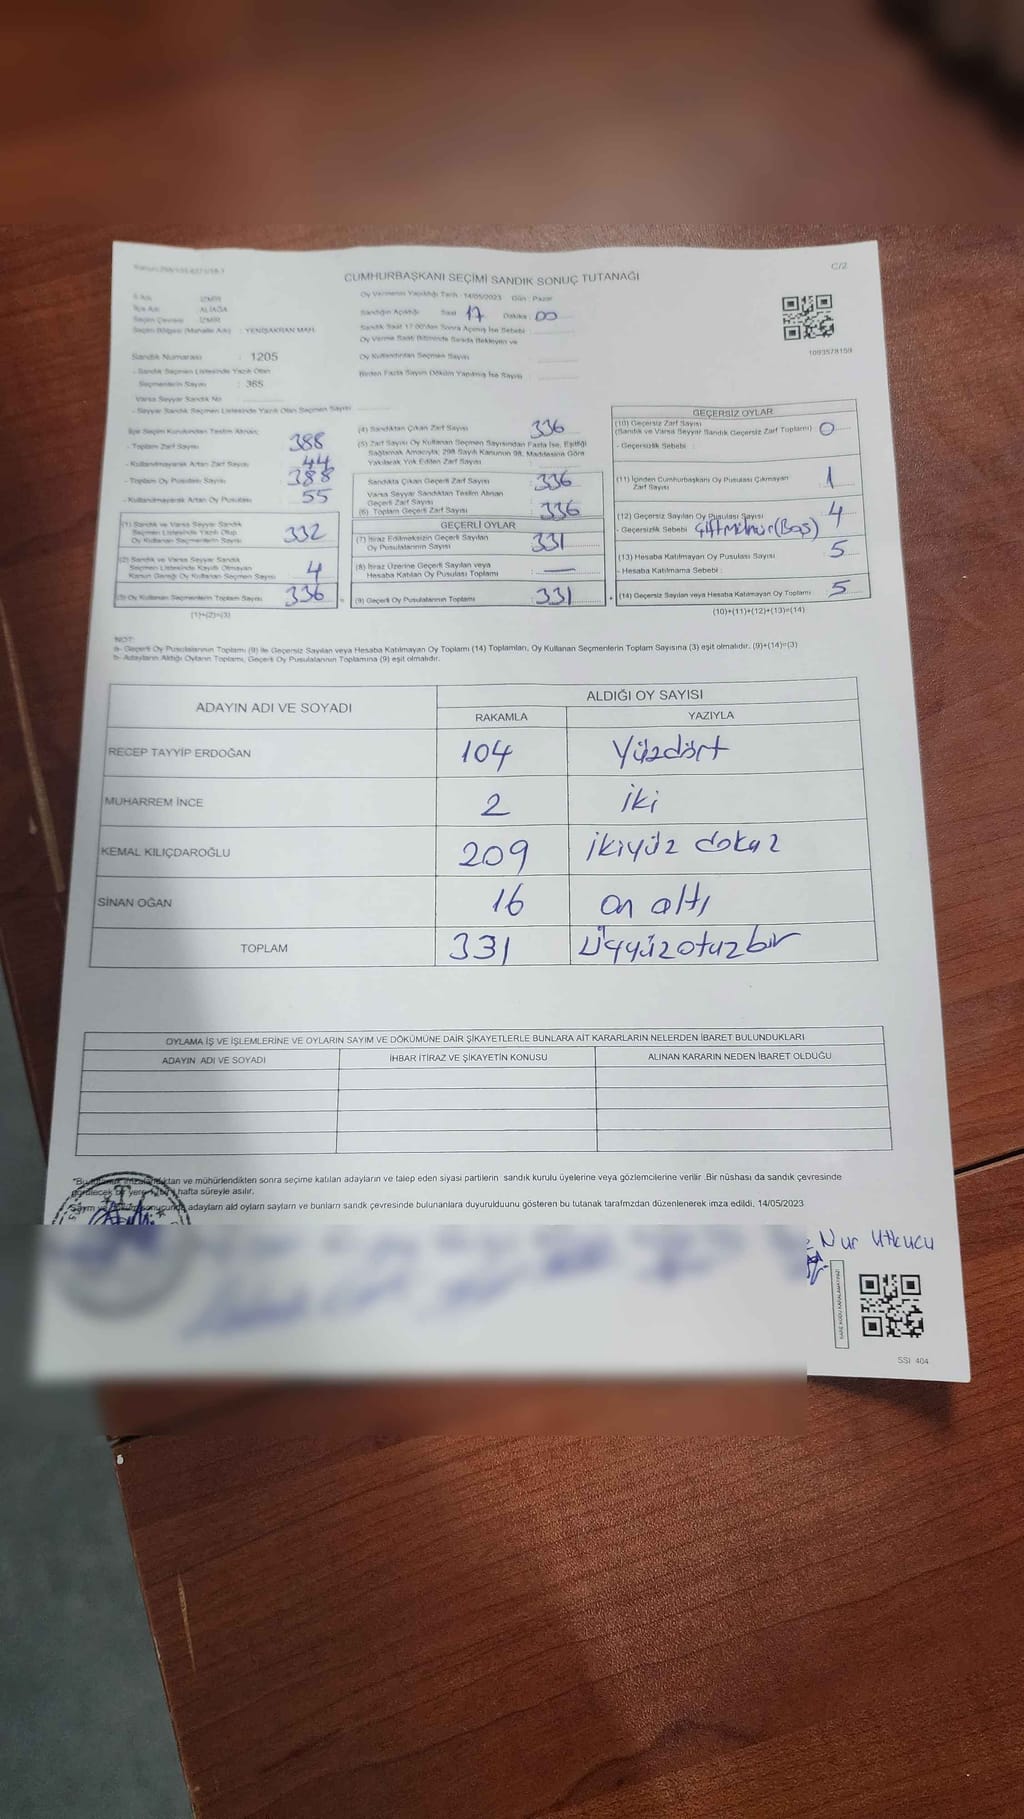 CUMHURBAŞKANI SEÇİMİ SANDIK SONUÇ TUTANAĞI
C/2
İli Adı : İZMİR
İlçe Adı : ALİAĞA
Seçim Çevresi : İZMİR
Seçim Bölgesi (Mahalle Adı) : YENİŞAKRAN MAH.
Oy Vermenin Yapıldığı Tarih : 14/05/2023 Gün : Pazar
Sandığın Açıldığı Saat 17 Dakika : 00
Sandık Saat 17.00'den Sonra Açılmış İse Sebebi :
Oy Verme Saati Bitiminde Sırada Bekleyen ve
Oy Kullandırılan Seçmen Sayısı
Birden Fazla Sayım Döküm Yapılmış İse Sayısı :
1093578159
Sandık Numarası : 1205
- Sandık Seçmen Listesinde Yazılı Olan
Seçmenlerin Sayısı : 365
Varsa Seyyar Sandık No
- Seyyar Sandık Seçmen Listesinde Yazılı Olan Seçmen Sayısı
İlçe Seçim Kurulundan Teslim Alınan;
- Toplam Zarf Sayısı 388
- Kullanılmayarak Artan Zarf Sayısı 44
- Toplam Oy Pusulası Sayısı 388
- Kullanılmayarak Artan Oy Pusulası 55
(1) Sandık ve Varsa Seyyar Sandık
Seçmen Listesinde Yazılı Olup
Oy Kullanan Seçmenlerin Sayısı 332
(2) Sandık ve Varsa Seyyar Sandık
Seçmen Listesinde Kayıtlı Olmayan
Kanun Gereği Oy Kullanan Seçmen Sayısı 4
(3) Oy Kullanan Seçmenlerin Toplam Sayısı 336
(1)+(2)=(3)
(4) Sandıktan Çıkan Zarf Sayısı 336
(5) Zarf Sayısı Oy Kullanan Seçmen Sayısından Fazla İse, Eşitliği
Sağlamak Amacıyla, 298 Sayılı Kanunun 98. Maddesine Göre
Yakılarak Yok Edilen Zarf Sayısı :
Sandıkta Çıkan Geçerli Zarf Sayısı 336
Varsa Seyyar Sandıktan Teslim Alınan
Geçerli Zarf Sayısı
(6) Toplam Geçerli Zarf Sayısı 336
GEÇERLİ OYLAR
(7) İtiraz Edilmeksizin Geçerli Sayılan
Oy Pusulalarının Sayısı 331
(8) İtiraz Üzerine Geçerli Sayılan veya
Hesaba Katılan Oy Pusulası Toplamı : —
(9) Geçerli Oy Pusulalarının Toplamı : 331
GEÇERSİZ OYLAR
(10) Geçersiz Zarf Sayısı
(Sandık ve Varsa Seyyar Sandık Geçersiz Zarf Toplamı) 0
- Geçersizlik Sebebi :
(11) İçinden Cumhurbaşkanı Oy Pusulası Çıkmayan
Zarf Sayısı 1
(12) Geçersiz Sayılan Oy Pusulası Sayısı 4
- Geçersizlik Sebebi Çift Mühür (Boş)
(13) Hesaba Katılmayan Oy Pusulası Sayısı 5
- Hesaba Katılmama Sebebi :
(14) Geçersiz Sayılan veya Hesaba Katılmayan Oy Toplamı 5
(10)+(11)+(12)+(13)=(14)
NOT:
a- Geçerli Oy Pusulalarının Toplamı (9) ile Geçersiz Sayılan veya Hesaba Katılmayan Oy Toplamı (14) Toplamları, Oy Kullanan Seçmenlerin Toplam Sayısına (3) eşit olmalıdır. (9)+(14)=(3)
b- Adayların Aldığı Oyların Toplamı, Geçerli Oy Pusulalarının Toplamına (9) eşit olmalıdır.
ADAYIN ADI VE SOYADI ALDIĞI OY SAYISI
RAKAMLA YAZIYLA
RECEP TAYYİP ERDOĞAN 104 Yüzdört
MUHARREM İNCE 2 iki
KEMAL KILIÇDAROĞLU 209 ikiyüz dokuz
SİNAN OĞAN 16 on altı
TOPLAM 331 Üçyüzotuzbir
OYLAMA İŞ VE İŞLEMLERİNE VE OYLARIN SAYIM VE DÖKÜMÜNE DAİR ŞİKAYETLERLE BUNLARA AİT KARARLARIN NELERDEN İBARET BULUNDUKLARI
ADAYIN ADI VE SOYADI İHBAR İTİRAZ VE ŞİKAYETİN KONUSU ALINAN KARARIN NEDEN İBARET OLDUĞU
ve mühürlendikten sonra seçime katılan adayların ve talep eden siyasi partilerin sandık kurulu üyelerine veya gözlemcilerine verilir. Bir nüshası da sandık çevresinde
hafta süreyle asılır.
adayların ald oyların sayıları ve bunların sandık çevresinde bulunanlara duyurulduunu gösteren bu tutanak tarafmzdan düzenlenerek imza edildi. 14/05/2023
Nur Utkucu
SSİ 404